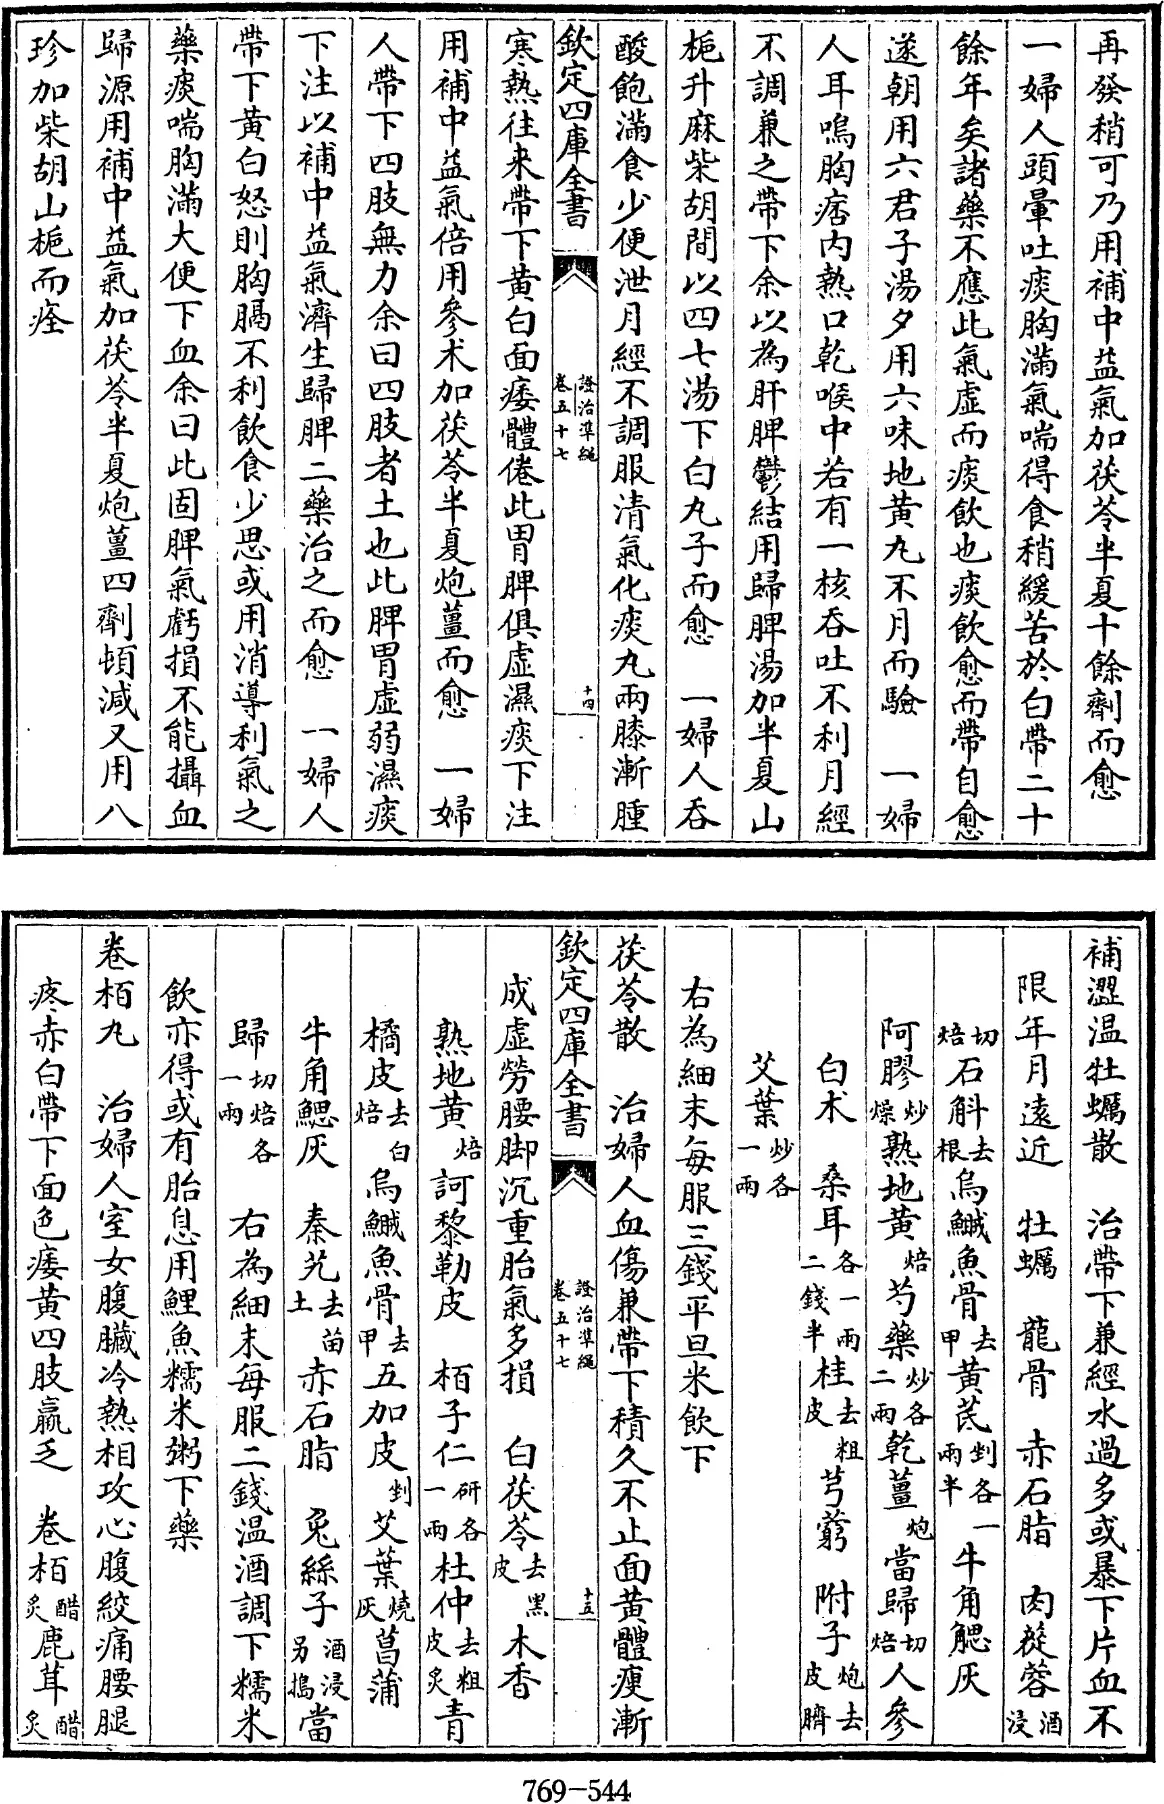 再發稍可乃用補中益氣加茯苓半夏十餘劑而愈
一婦人頭暈吐痰胸滿氣喘得食稍緩苦於白帶二十
餘年矣諸藥不應此氣虛而痰飲也痰飲愈而帶自愈
遂朝用六君子湯夕用六味地黃丸不月而驗　一婦
人耳鳴胸痞内熱口乾喉中若有一核吞吐不利月經
不調兼之帶下余以為肝脾鬱結用歸脾湯加半夏山
梔升麻柴胡間以四七湯下白丸子而愈　一婦人吞
酸飽滿食少便泄月經不調服清氣化痰丸兩膝漸腫
欽定四庫全書　證治準繩　卷五十七　十四
寒熱往来帶下黃白面痿體倦此胃脾俱虛濕痰下注
用補中益氣倍用參术加茯苓半夏炮薑而愈　一婦
人帶下四肢無力余曰四肢者土也此脾胃虛弱濕痰
下注以補中益氣濟生歸脾二藥治之而愈　一婦人
帶下黃白怒則胸膈不利飲食少思或用消導利氣之
藥痰喘胸滿大便下血余曰此固脾氣虧損不能攝血
歸源用補中益氣加茯苓半夏炮薑四劑頓減又用八
珍加柴胡山梔而痊
補澀温牡蠣散　治帶下兼經水過多或暴下片血不
限年月遠近　牡蠣　龍骨　赤石脂　肉蓯蓉酒浸
切焙石斛去根烏鰂魚骨去甲黃茋剉各一兩半牛角䚡灰
阿膠炒燥熟地黃焙芍藥炒各二兩乾薑炮當歸切焙人參
白术　桑耳各一兩二錢半桂去粗皮芎藭　附子炮去皮臍
艾葉炒各一兩
右為細末每服三錢平旦米飲下
茯苓散　治婦人血傷兼帶下積久不止面黃體瘦漸
欽定四庫全書　證治準繩　卷五十七　十五
成虛勞腰脚沉重胎氣多損　白茯苓去黑皮木香
熟地黃焙訶黎勒皮　栢子仁研各一兩杜仲去粗皮炙青
橘皮去白焙烏鰂魚骨去甲五加皮剉艾葉燒灰菖蒲
牛角䚡灰　秦艽去苗土赤石脂　兔絲子酒浸另搗當
歸切焙各一兩　右為細末每服二錢温酒調下糯米
飲亦得或有胎息用鯉魚糯米粥下藥
卷栢丸　治婦人室女腹臟冷熱相攻心腹絞痛腰腿
疼赤白帶下面色痿黃四肢羸乏　卷栢醋炙鹿茸醋炙
769-544